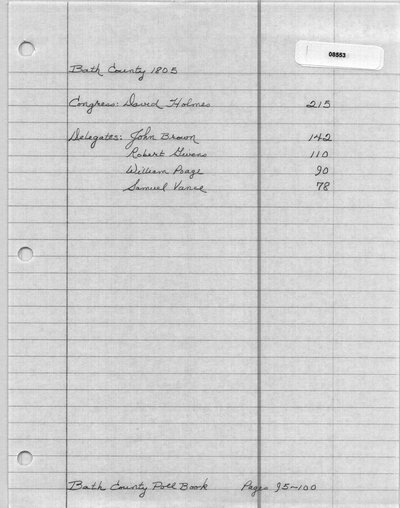 08553
Bath County 1805
Congress: David Holmes 215
Delegates: John Brown 142
Robert Givens 110
William Poage 90
Samuel Vance 78
Bath County Poll Book Pages 95-100